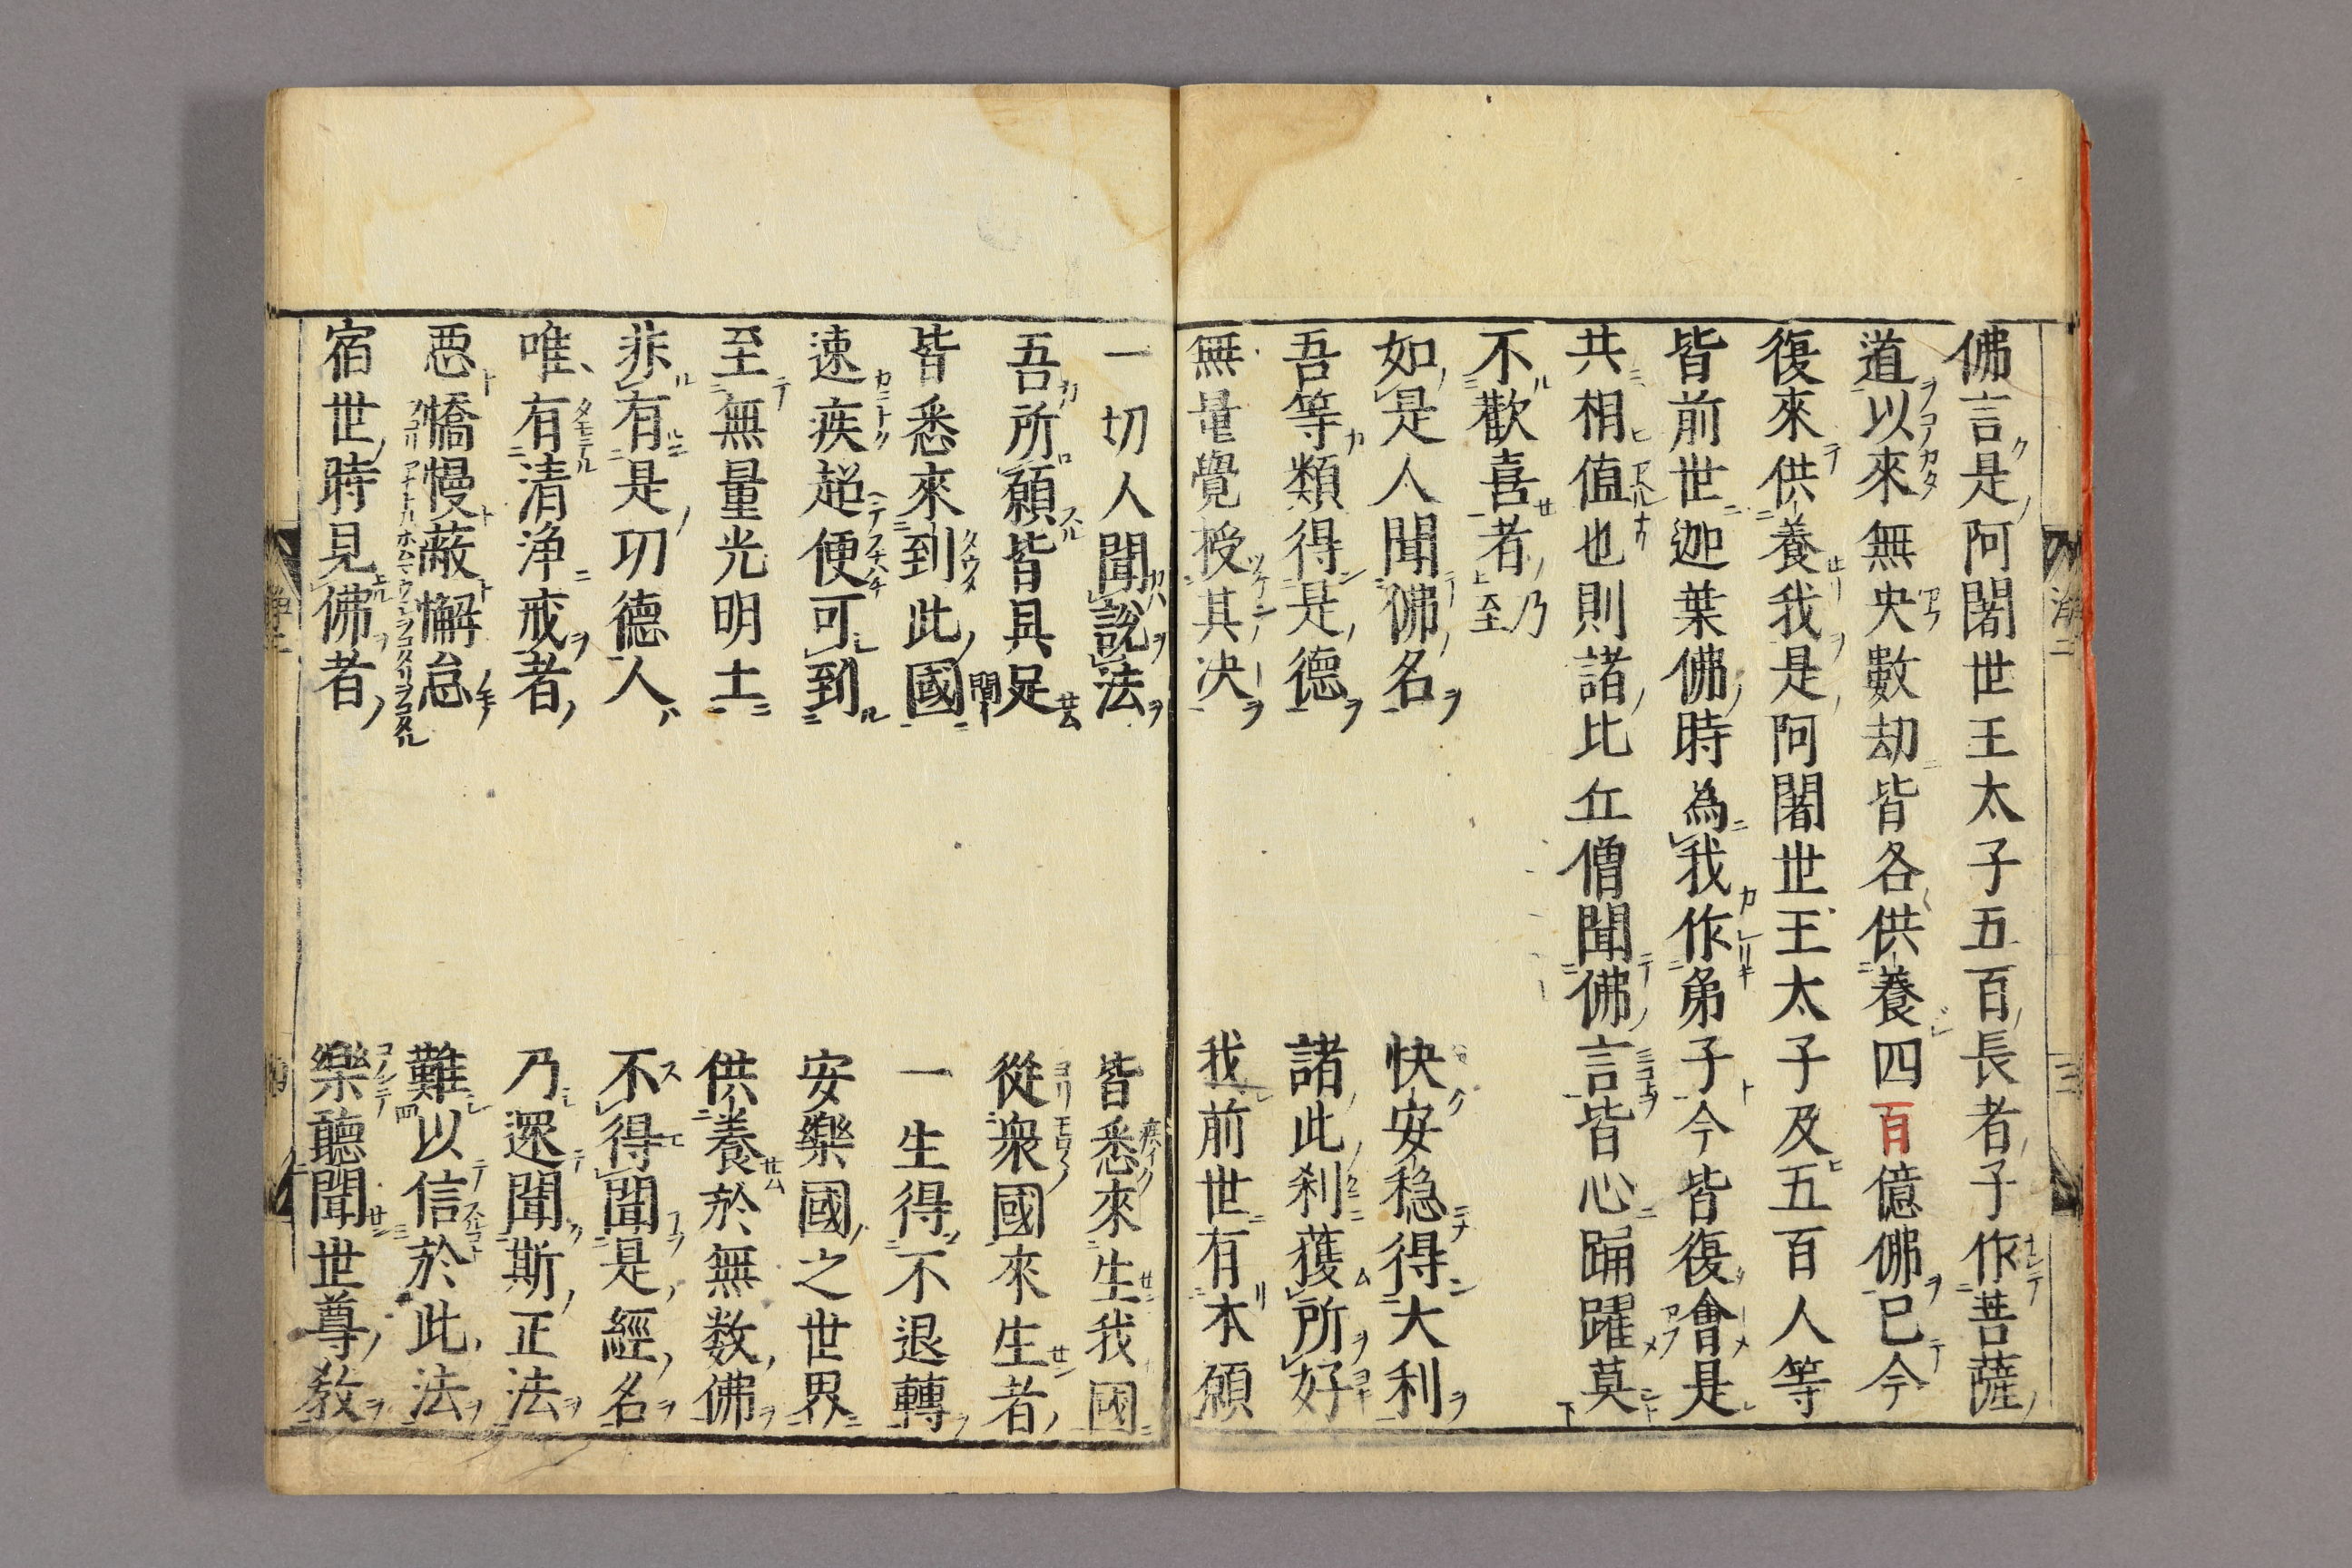 佛言是阿闍世王太子五百長者子作菩薩
道以來無央數劫皆各供養四百億佛已今
復來供養我是阿闍世王太子及五百人等
皆前世迦葉佛時為我作弟子今皆復會是
共相值也則諸比丘僧聞佛言皆心踊躍莫
不歡喜者乃至
如是人聞佛名 快安穏得大利
吾等類得是德 諸此刹獲所好
無量覺授其决 我前世有本願
一切人聞說法 皆悉來生我國
吾所願皆具足 從衆國來生者
皆悉來到此國 一生得不退轉
速疾超便可到 安樂國之世界
至無量光明土 供養於無数佛
非有是功德人 不得聞是經名
唯有清浄戒者 乃還聞斯正法
惡憍慢蔽懈怠 難以信於此法
宿世時見佛者 樂聽聞世尊教